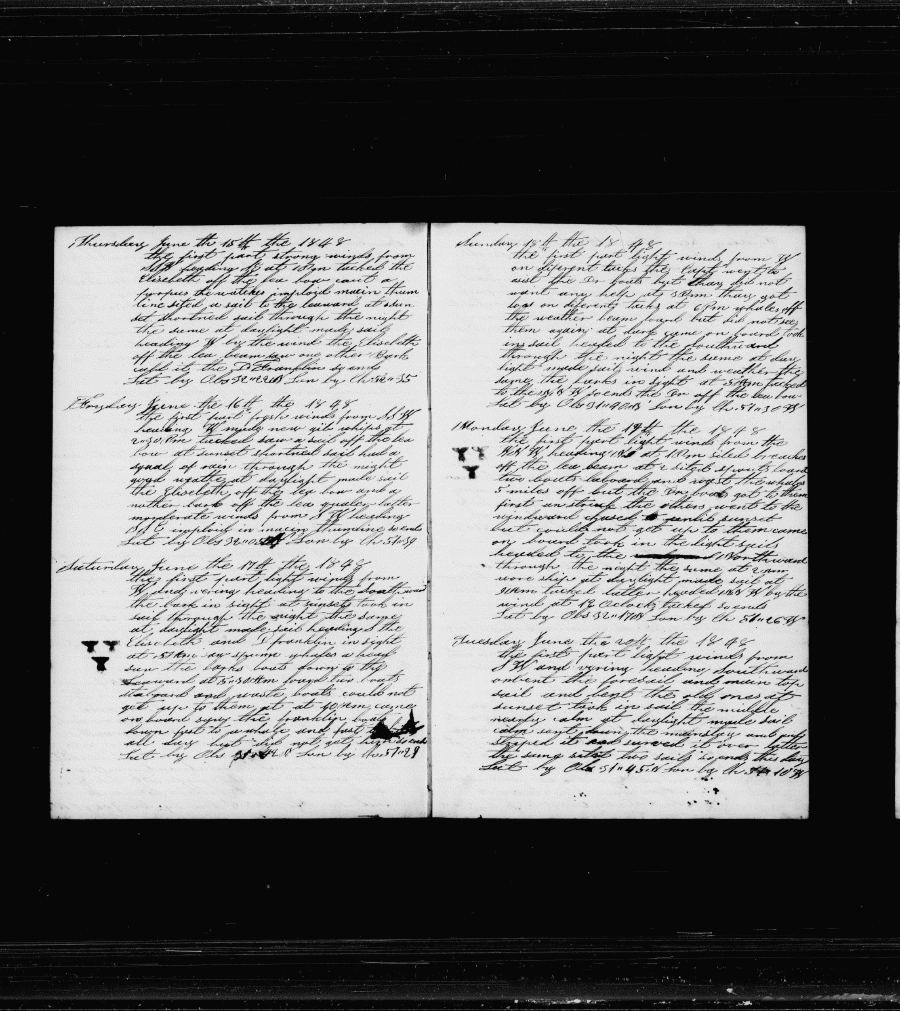 Thursday June th 15th the 1848
the first part strong winds from
heading off at 10 pm tacked the
Elisebeth off the lee bow caut a
porpus the watches imploid makin thum
line sited a sail to the leaward at sun
set shortned sail through the night
the same at daylight made sail
heading W by the wind the Elisebeth
off the lea beam saw one other Bark
calld it the Dr Franklin so ends
Lat by Obs Lon by Ch
June the 16th the 1848
the first part fresh winds from
heading W made new gib whips at
2=30 Pm tacked saw a sail off the lea
bow at sunset shortned sail had a
squal of rain through the night
good weather at daylight made sail
the Elisebeth off the lea bow and a
nuther bark off the lea quater latter
monderate winds from S W heading
imploid in makin thumline so ends
Lat by Obs Lon by Ch 51=39
Saturday June the 17th the 1848
the first part light winds from
W and vering heading to the Southward
the bark in sight at sunset took in
sail through the night the same
at daylight made sail heading S the
Elisebeth and Franklin in sight
at sperm whales a head
saw the barks boats down to the
Leaward at lowrd two boats
starboard and waste boats could not
get up to them at at 10 Am came
on board saw the franklin boats
down fast to a whale and fast
all day but did not get him so ends
Lat by Obs Lon by Ch 51=29
Sunday 18th the 1848
the first part light winds from W
on diferent tacks the Capt went to
asist the Dr boats but thay did not
want any help at 3 Pm thay got
on diferent tacks at 6 Pm whales off
the weather beam lowrd but did not see
them again at dark came on board took
in sail headed to the Southward
through the night the same at day
light made sail wind and weather the
same the barks in sight at tacked
to the so ends the Dr off the lea bow
Lat by Obs 31=40 N Lon by Ch 51=30 W
Monday June the 19th the 1848
the first part light winds from the
heading at 1 Pm sited breaches
off the lea beam at 2 sited spouts lowrd
two boats laboard and wast the whales
5 miles off but the Dr boat got to them
first an struck the others went to the
windward chased untill sunset
but could not get up to them came
on board took in the light sails
headed to the Northward
through the night the same at 2 am
wore ship at daylight made sail at
9 Am tacked latter headed by the
wind at 12 Oclock tacked so ends
Lat by Obs 32=17 N Lon by Ch 51=26 W
Tuesday June the 20th the 1848
the first part light winds from
S W and vering heading Southward
onbent the foresail and main top
sail and bent the old ones at
sunset took in sail the middle
nearly calm at daylight made sail
calm sent down the mainsley and
riped it and sewed it over latter
the same sited two sails so ends this day
Lat by Obs 31=45 N Lon by Ch